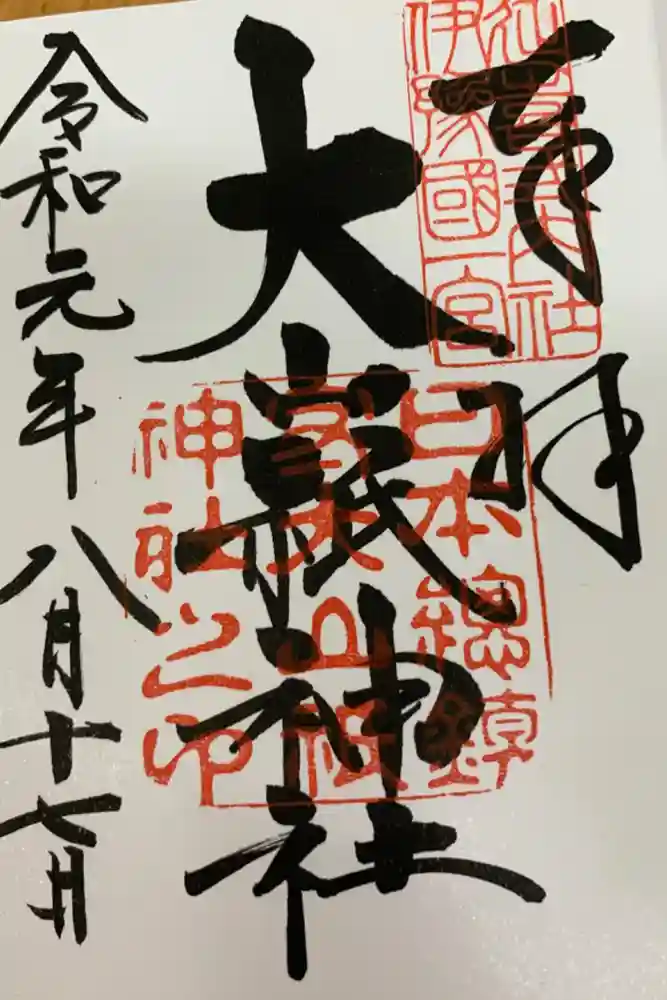 奉拝
延喜式内社
伊豫國一宮
大山祇神社
日本總鎮
守大山祇
神社之印
令和元年八月十七日